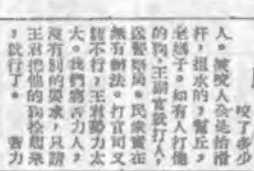 咬了多少
人。被咬人會是拾滑
杆,担水的,幫丘,
老媽子。如有人打他
的狗,王副官就打人,
送警察局。民衆實在
無有辦法。打官司又
打不行,王君勢力太
大。我們窮苦力人,
沒有別的要求,只請
王君把他的狗拴起來
,就行了。 苦力